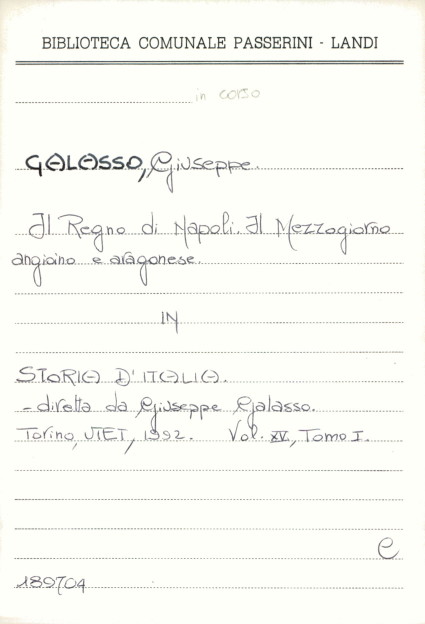 BIBLIOTECA COMUNALE PASSERINI - LANDI
in corso
GALASSO, Giuseppe.
Il Regno di Napoli. Il Mezzogiorno
angioino e aragonese.
IN
STORIA D'ITALIA.
- diretta da Giuseppe Galasso.
Torino, UTET, 1992. Vol. XV, Tomo I.
C
189704